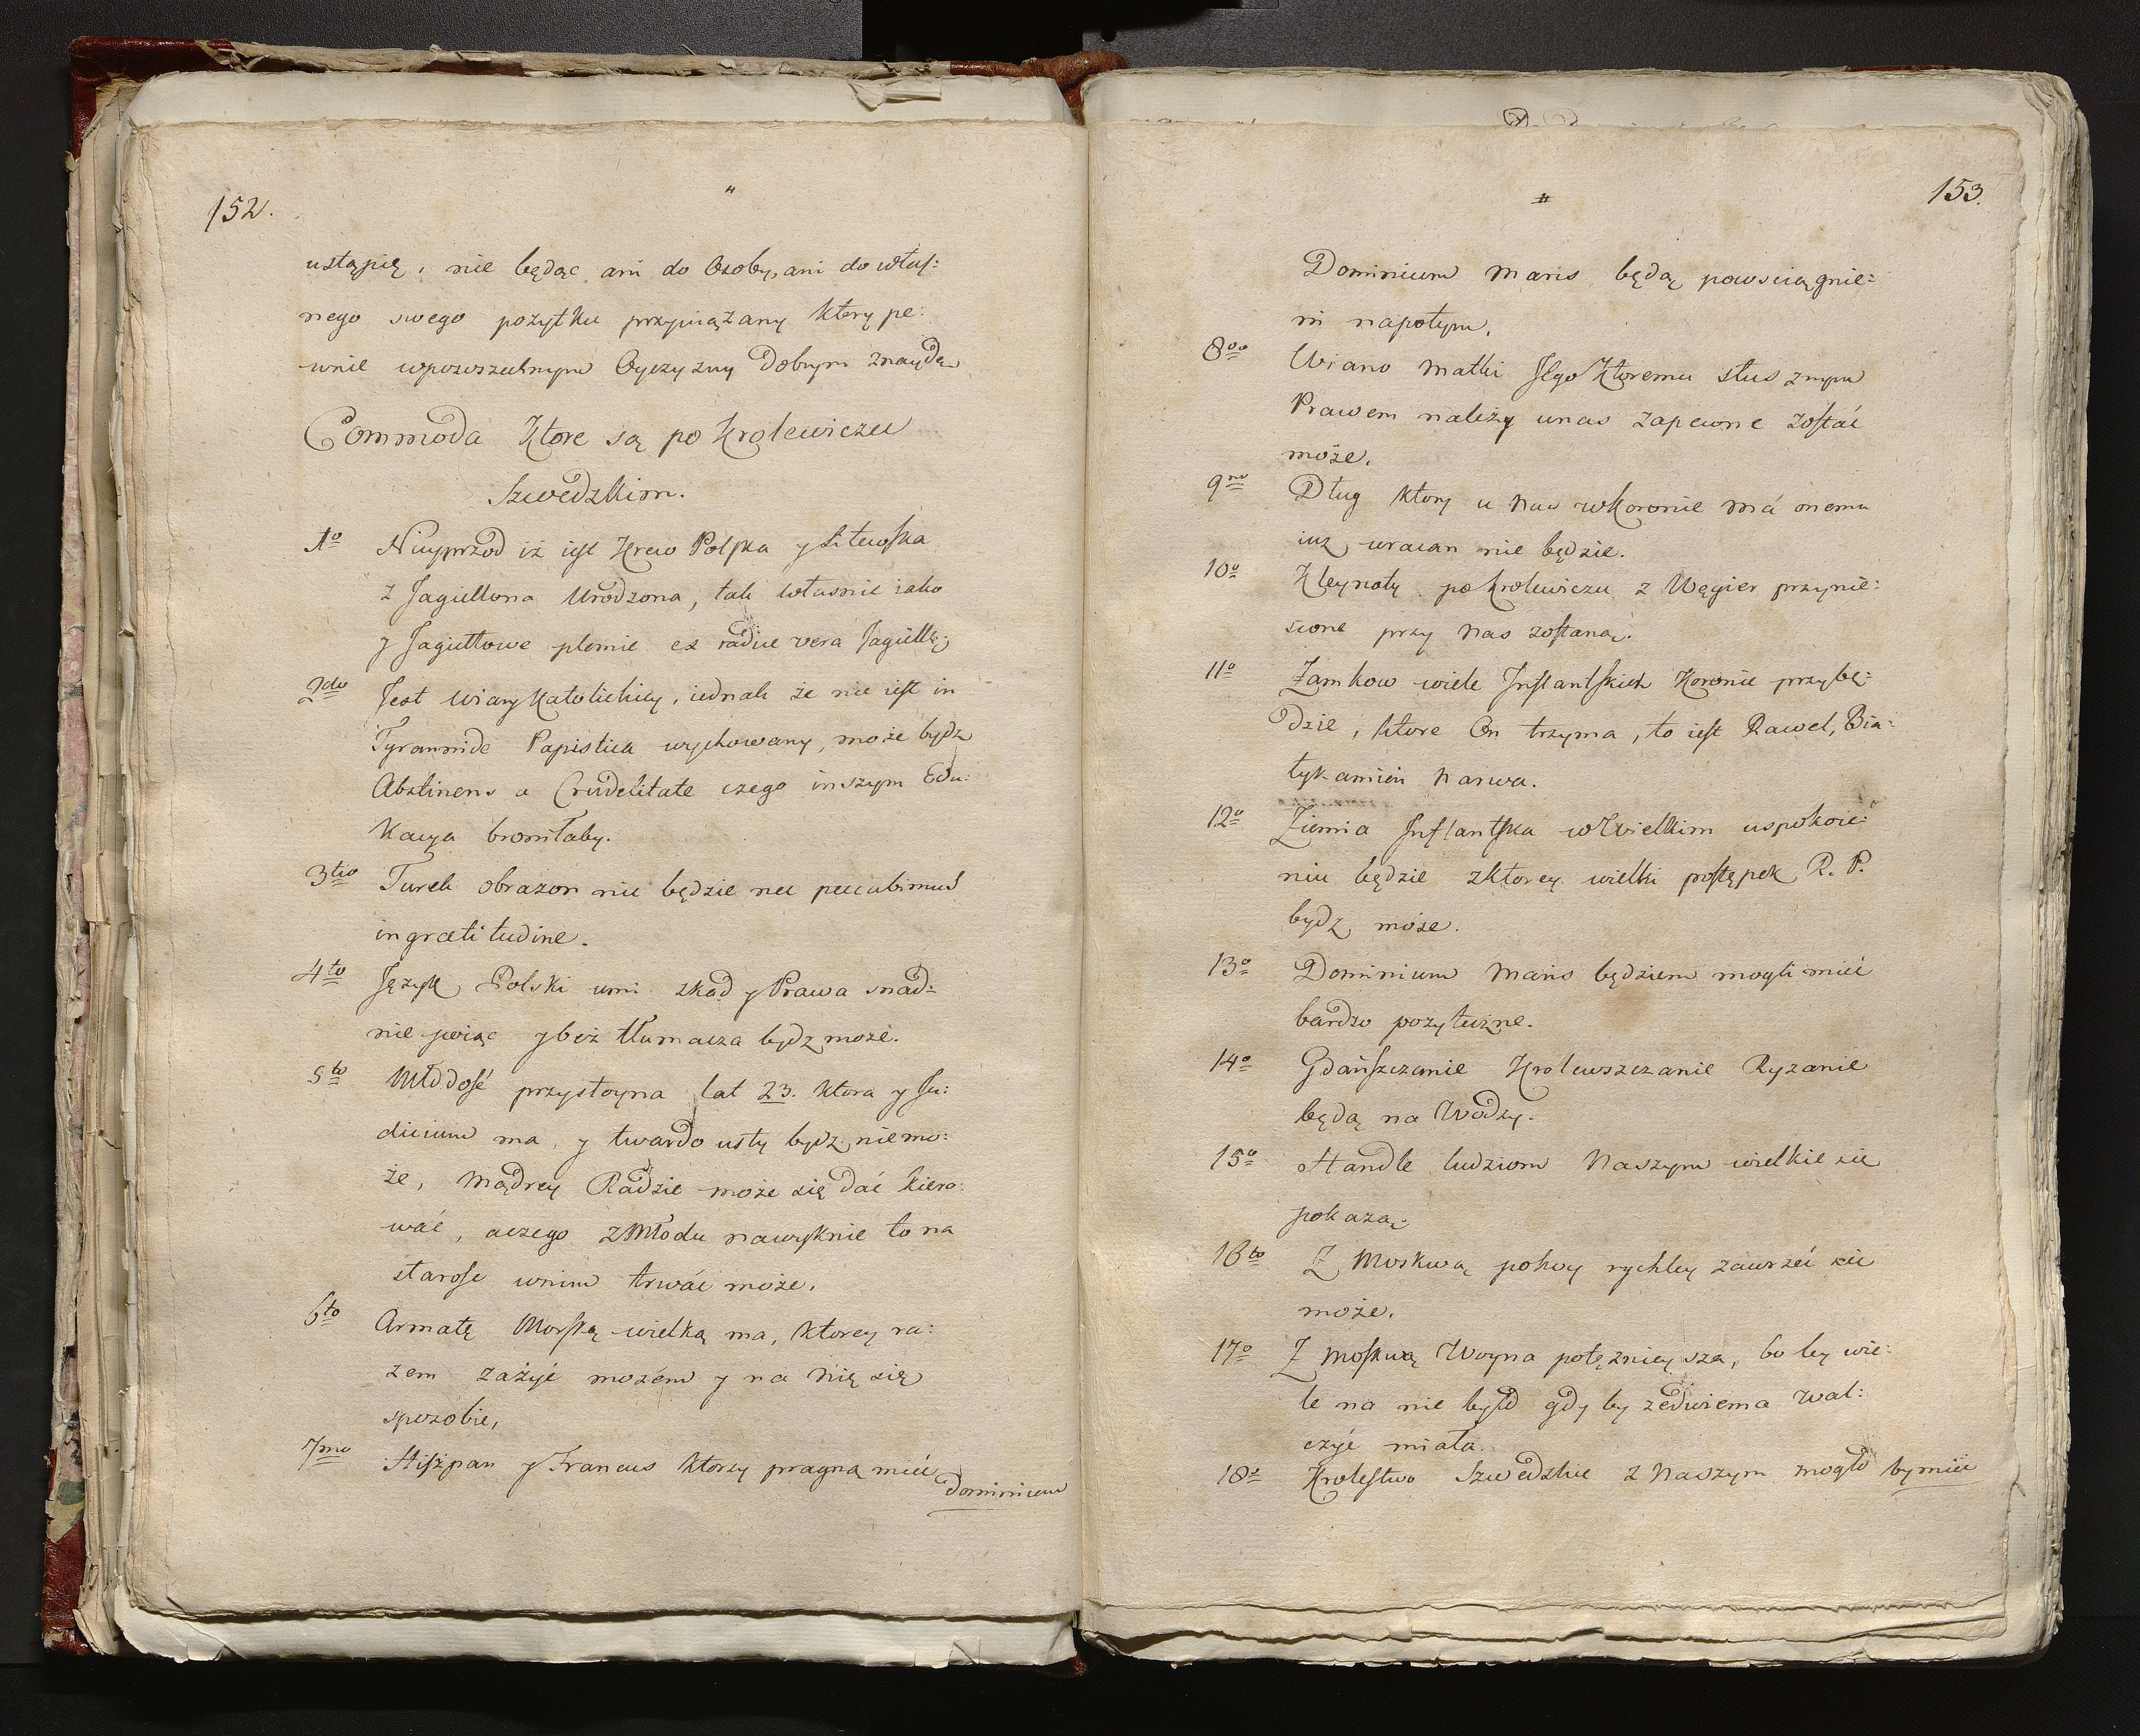 152.
"
ustąpię, nie będąc ani do Osoby, ani do włas:
nego swego pożytku przywiązany który pe:
wnie wpowszechnym Oyczyzny Dobrym znayde
Commoda Ktore są po Krolewiczu
Szwedzkim.
1o Nayprzod iż iest Krew Polska y Litewska
z Jagiellona Urodzona, tak własnie iako
y Jagiełłowe plemie ex radice vera Jagiełłę;
2do Jest Wiary Katolickiey, iednak że nie iest in
Tyrannide Papistica wychowany, może bydz
Abstinens a Crudelitate czego inszym Edu:
kacya broniłaby.
3tio Turek obrazon nie będzie nec peccabimus
ingratitudine.
4to Język Polski umi zkąd y Prawa snad:
nie poiąc y bez tłumacza bydz może.
5to Młodość przystoyna lat 23. ktora y Ju:
dicium ma, y twardo usty bydz niemo:
że, Mądrey Radzie może się dać kiero:
wać, aczego zMłodu nawyknie to na
starosc wnim trwać może,
6to Armatę Morską wielką ma, ktorey ra:
zem zażyć możem y na nię się
sposobie,
7mo Hiszpan y Francus ktorzy pragną mieć
Dominium
153.
"
Dominium Maris będą powsciągnie:
ni napotym,
8vo Wiano Matki Jego Ktoremu słusznym
Prawem należy unas zapewne zostać
może,
9no Dług ktory u Nas wKoronie má onemu
iuz wracan nie będzie.
10o Kleynoty po Krolewiczu z Węgier przynie:
sione przy Nas zostaną.
11o Zamkow wiele Inflantskich Koronie przybę:
dzie, ktore On trzyma, to iest Rawel, Bia:
łykamień Narwa.
12o Ziemia Inflantska wWielkim uspokoie:
niu będzie zktorey wielki postępek R. P.
bydz może.
13o Dominium Maris będziem mogli mieć
bardzo pozyteczne.
14o Gdańszczanie Krolewszczanie Ryzanie
będą na Wodzy.
15o Handle ludziom Naszym wielkie sie
pokazą.
16to Z Moskwą pokoy rychley zawrzeć sie
może.
17o Z Moskwą Woyna potężnieysza, bo by wie:
le na nie było gdy by zedwiema Wal:
czyć miała.
18o Krolestwo Szwedzkie z Naszym mogło by mieć